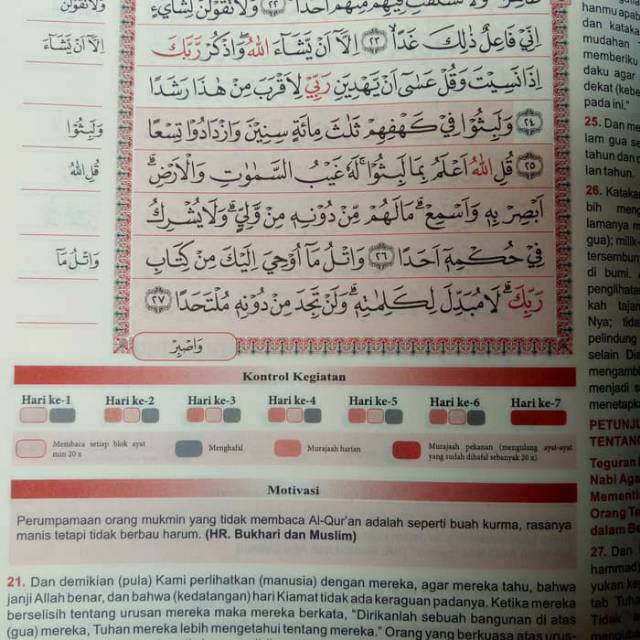 وَّلَا تَسْتَفْتِ فِيْهِمْ مِّنْهُمْ اَحَدًا ٢٢ وَلَا تَقُوْلَنَّ لِشَا۟يْءٍ
اِنِّيْ فَاعِلٌ ذٰلِكَ غَدًاۙ ٢٣ اِلَّآ اَنْ يَّشَاۤءَ اللّٰهُ ۖوَاذْكُرْ رَّبَّكَ
اِذَا نَسِيْتَ وَقُلْ عَسٰٓى اَنْ يَّهْدِيَنِ رَبِّيْ لِاَقْرَبَ مِنْ هٰذَا رَشَدًا
٢٤ وَلَبِثُوْا فِيْ كَهْفِهِمْ ثَلٰثَ مِائَةٍ سِنِيْنَ وَازْدَادُوْا تِسْعًا
٢٥ قُلِ اللّٰهُ اَعْلَمُ بِمَا لَبِثُوْا ۚ لَهٗ غَيْبُ السَّمٰوٰتِ وَالْاَرْضِۗ
اَبْصِرْ بِهٖ وَاَسْمِعْۗ مَا لَهُمْ مِّنْ دُوْنِهٖ مِنْ وَّلِيٍّۗ وَلَا يُشْرِكُ
فِيْ حُكْمِهٖٓ اَحَدًا ٢٦ وَاتْلُ مَآ اُوْحِيَ اِلَيْكَ مِنْ كِتَابِ
رَبِّكَۗ لَا مُبَدِّلَ لِكَلِمٰتِهٖۗ وَلَنْ تَجِدَ مِنْ دُوْنِهٖ مُلْتَحَدًا ٢٧
وَاصْبِرْ
وَلَا تَقُوْلَنَّ
اِلَّآ اَنْ يَّشَاۤءَ
وَلَبِثُوْا
قُلِ اللّٰهُ
وَاتْلُ مَآ
Kontrol Kegiatan
Hari ke-1 Hari ke-2 Hari ke-3 Hari ke-4 Hari ke-5 Hari ke-6 Hari ke-7
Membaca setiap blok ayat min 20 x
Menghafal
Murajaah harian
Murajaah pekanan (mengulang ayat-ayat yang sudah dihafal sebanyak 20 x)
Motivasi
Perumpamaan orang mukmin yang tidak membaca Al-Qur'an adalah seperti buah kurma, rasanya
manis tetapi tidak berbau harum. (HR. Bukhari dan Muslim)
21. Dan demikian (pula) Kami perlihatkan (manusia) dengan mereka, agar mereka tahu, bahwa
janji Allah benar, dan bahwa (kedatangan) hari Kiamat tidak ada keraguan padanya. Ketika mereka
berselisih tentang urusan mereka maka mereka berkata, "Dirikanlah sebuah bangunan di atas
(gua) mereka, Tuhan mereka lebih mengetahui tentang mereka." Orang yang berkuasa atas
dan kataka
mudahan
memberiku
daku agar
dekat (kebe
pada ini."
25. Dan me
lam gua se
tahun dan
lan tahun.
26. Kataka
bih meng
lamanya m
gua); milik
tersembun
di bumi.
penglihata
kah tajam
Nya; tida
pelindung
selain Dia
mengambi
menjadi s
menetapka
PETUNJU
TENTANG
Teguran
Nabi Aga
Mementi
Orang Te
dalam Be
27. Dan
hammad)
yukan ke
tab Tuha
Tidak